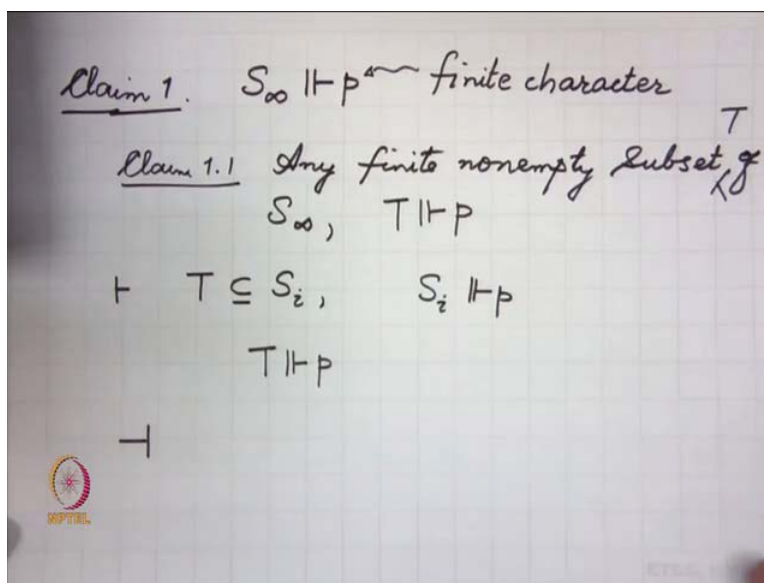 Claim 1. S∞ ⊩ p ← finite character
T
Claim 1.1 Any finite nonempty subset of
S∞, T ⊩ p
⊢ T ⊆ Sᵢ, Sᵢ ⊩ p
T ⊩ p
⊣
NPTEL